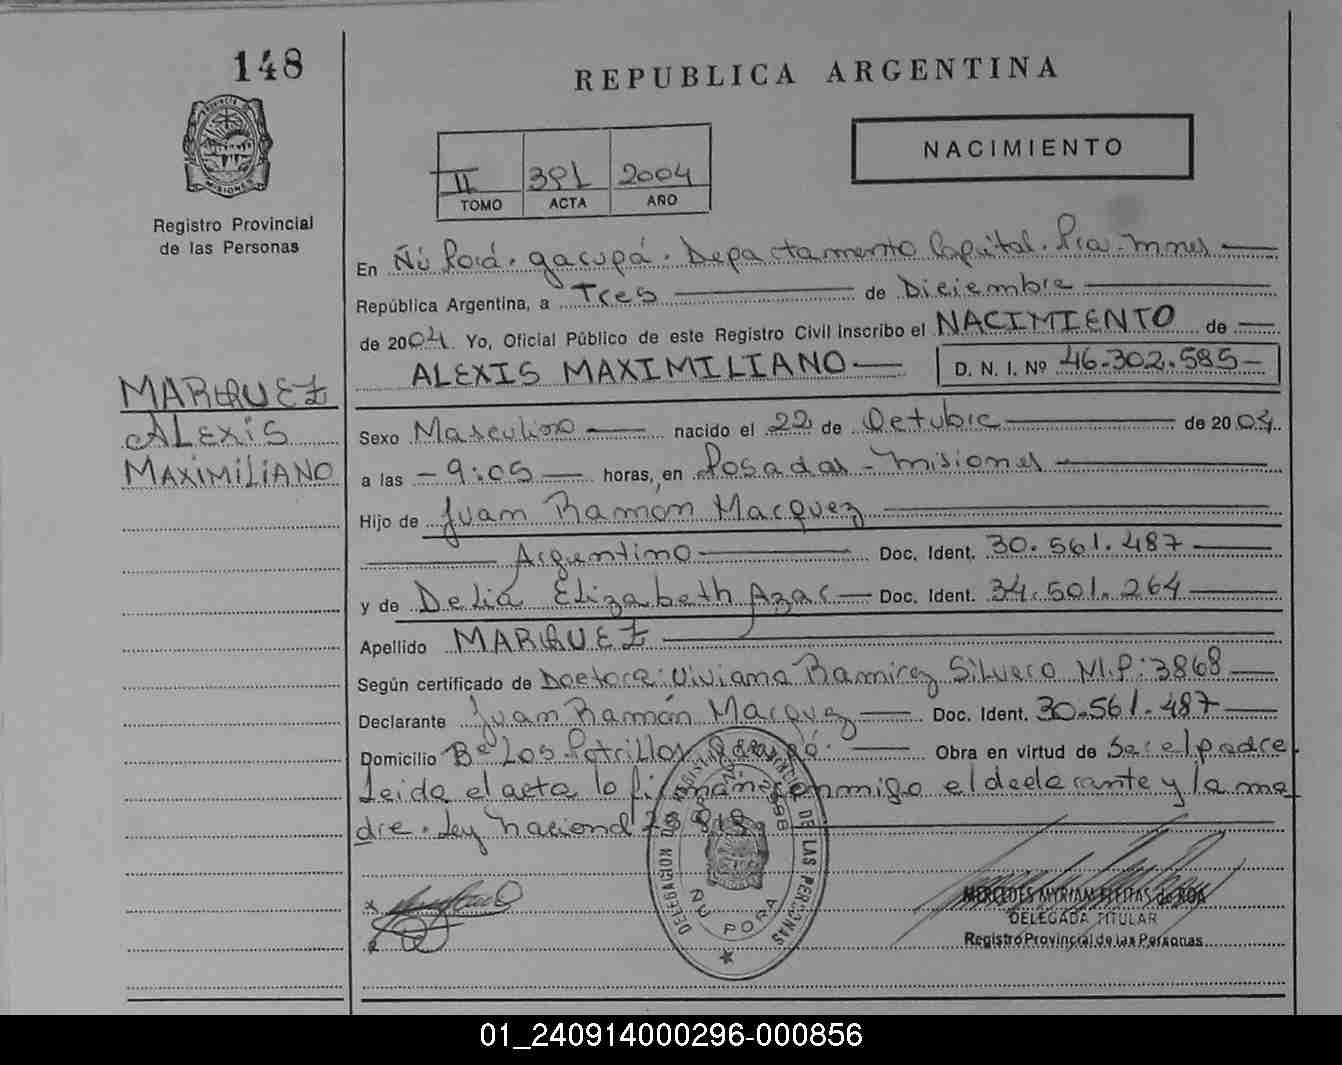 148
REPUBLICA ARGENTINA
PROVINCIA DE
MISIONES
Registro Provincial
de las Personas
II 391 2004
TOMO ACTA AÑO
NACIMIENTO
En Ñú Porá. Garupá. Departamento Capital. Pcia. Mnes
República Argentina, a Tres de Diciembre
de 2004. Yo, Oficial Público de este Registro Civil inscribo el NACIMIENTO de
ALEXIS MAXIMILIANO D. N. I. Nº 46.302.585
MARQUEZ
ALEXIS
MAXIMILIANO
Sexo Masculino nacido el 22 de Octubre de 2004.
a las 9:05 horas, en Posadas - Misiones
Hijo de Juan Ramón Marquez
Argentino Doc. Ident. 30.561.487
y de Delia Elizabeth Azar Doc. Ident. 34.501.264
Apellido MARQUEZ
Según certificado de Doctora: Viviana Ramirez Silvero M.P: 3868
Declarante Juan Ramón Marquez Doc. Ident. 30.561.487
Domicilio Bº Los Potrillos Garupá. Obra en virtud de Ser el padre.
Leida el acta lo firman conmigo el declarante y la ma
dre. Ley Nacional
DELEGACION DEL REGISTRO PROVINCIAL DE LAS PERSONAS
ÑU PORA
MERCEDES MYRIAM FLEITAS de ROA
DELEGADA TITULAR
Registro Provincial de las Personas
01_240914000296-000856